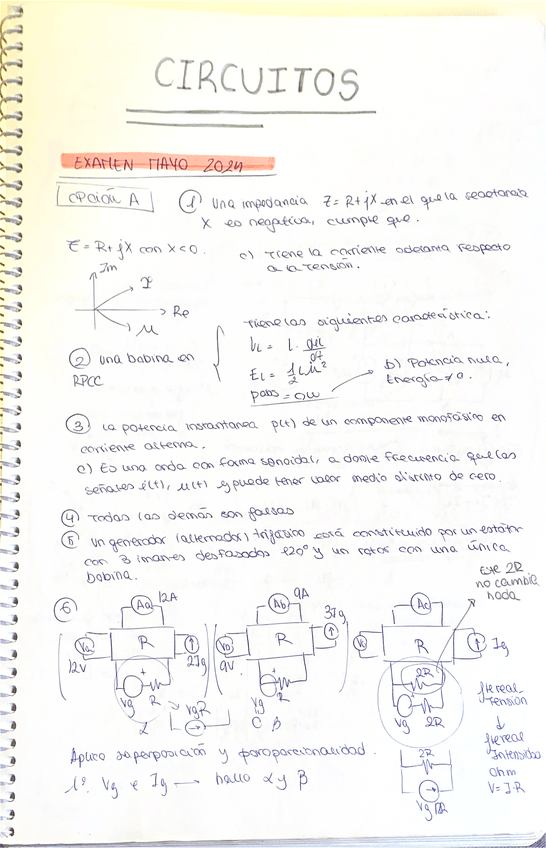 CIRCUITOS
EXAMEN MAYO 2024
OPCIÓN A
① Una impedancia Z = R + jX en el que la reactancia
X es negativa, cumple que.
Z = R + jX con X < 0.
c) Tiene la corriente adelanta respecto
a la tensión.
Im
I
Re
U
② una bobina en
RPCC
Tiene las siguientes característica:
UL = L · diL/dt
EL = 1/2 L iL²
Pabs = 0W
b) Potencia nula,
Energía ≠ 0.
③ La potencia instantanea p(t) de un componente monofásico en
corriente alterna.
c) Es una onda con forma senoidal, a doble frecuencia que las
señales i(t), u(t) y puede tener valor medio distinto de cero.
④ Todas las demás son falsas
⑤ Un generador (alternador) trifásico está constituido por un estátor
con 3 imanes desfasados 120° y un rotor con una única
bobina.
Ese 2R
no cambia
nada
⑥
Aa 12A
R
12V
2Ig
Vg R
α
Ab 9A
R
9V
3Ig
Vg R
β
Ac
R
Ig
2R
Vg 2R
f real
Tensión
↓
f real
Intensidad
Ohm
V = I·R
2R
Aplico superposición y proporcionalidad.
1º. Vg e Ig → hallo α y β